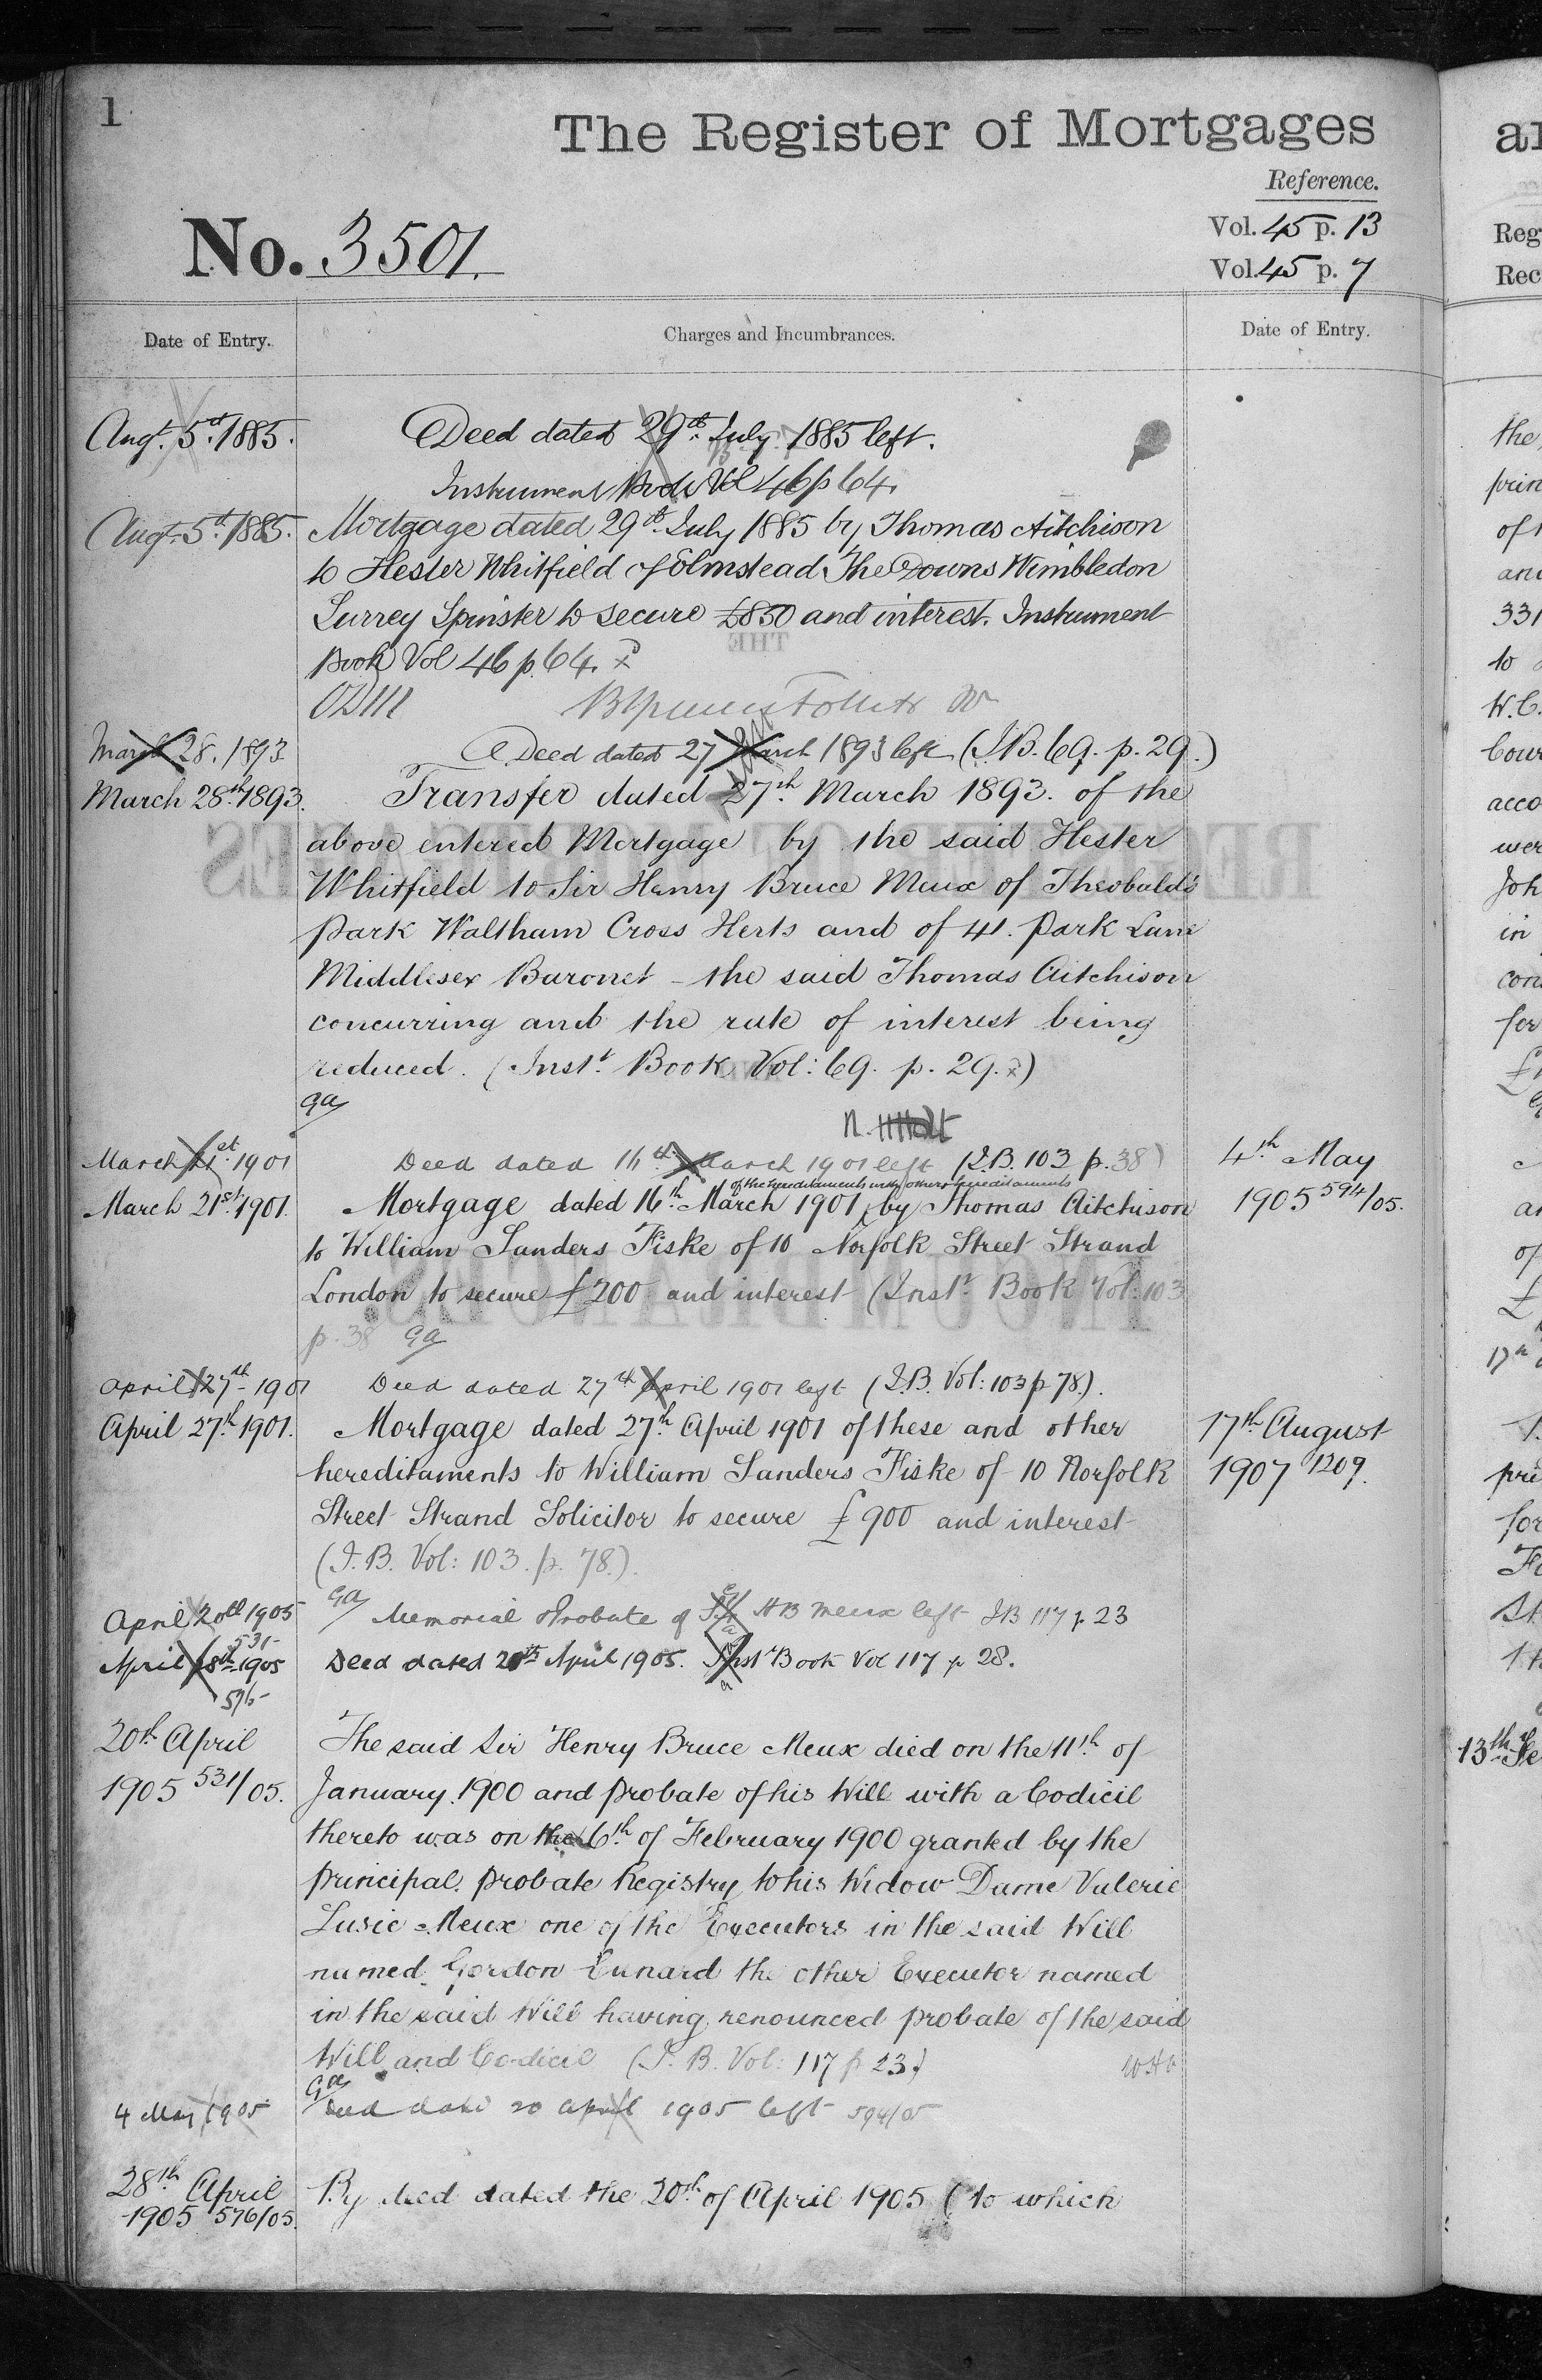 1
The Register of Mortgages
Reference.
No. 3501.
Vol. 45 p. 13
Vol. 45 p. 7
Date of Entry.
Charges and Incumbrances.
Date of Entry.
Augt. 5th 1885.
Deed dated 29th July 1885 left.
Instrument Book Vol 46 p 64.
Augt. 5th 1885.
Mortgage dated 29th July 1885 by Thomas Aitchison
to Hester Whitfield of Elmstead The Downs Wimbledon
Surrey Spinster to secure £850 and interest. Instrument
Book Vol 46 p. 64.
March 28. 1893
Deed dated 27 March 1893 left (I.B. 69. p. 29.)
March 28th 1893.
Transfer dated 27th March 1893. of the
above entered Mortgage by the said Hester
Whitfield to Sir Henry Bruce Meux of Theobald's
Park Waltham Cross Herts and of 41. Park Lane
Middlesex Baronet - the said Thomas Aitchison
concurring and the rate of interest being
reduced. (Inst. Book Vol: 69. p. 29.)
ga
March 21st 1901
Deed dated 16th March 1901 left (I.B. 103 p. 38)
4th May
1905 594/05.
of the hereditaments with other hereditaments
March 21st 1901.
Mortgage dated 16th March 1901 by Thomas Aitchison
to William Sanders Fiske of 10 Norfolk Street Strand
London to secure £200 and interest (Inst. Book Vol: 103
p. 38 ga
April 27th 1901
Deed dated 27th April 1901 left (I.B. Vol: 103 p 78.).
April 27th 1901.
Mortgage dated 27th April 1901 of these and other
17th August
hereditaments to William Sanders Fiske of 10 Norfolk
1907 1209.
Street Strand Solicitor to secure £900 and interest
(I.B. Vol: 103. p. 78.).
ga
April 20th 1905
531
Memorial Probate of Sir HB Meux left IB 117 p 23
April 28th 1905
576
Deed dated 20th April 1905. Inst Book Vol 117 p 28.
20th April
1905 531/05.
The said Sir Henry Bruce Meux died on the 11th of
January 1900 and probate of his Will with a Codicil
thereto was on the 6th of February 1900 granted by the
principal probate Registry to his Widow Dame Valerie
Susie Meux one of the Executors in the said Will
named Gordon Cunard the other Executor named
in the said Will having renounced probate of the said
Will and Codicil (I. B. Vol: 117 p 23.)
ga
4 May 1905
Deed date 20 April 1905 left 594/05
28th April
1905 576/05.
By deed dated the 20th of April 1905 (to which
Reg
Rec
the
of
331
to
W.C.
acco
wer
Joh
in
for
17th
pri
for
13th Se